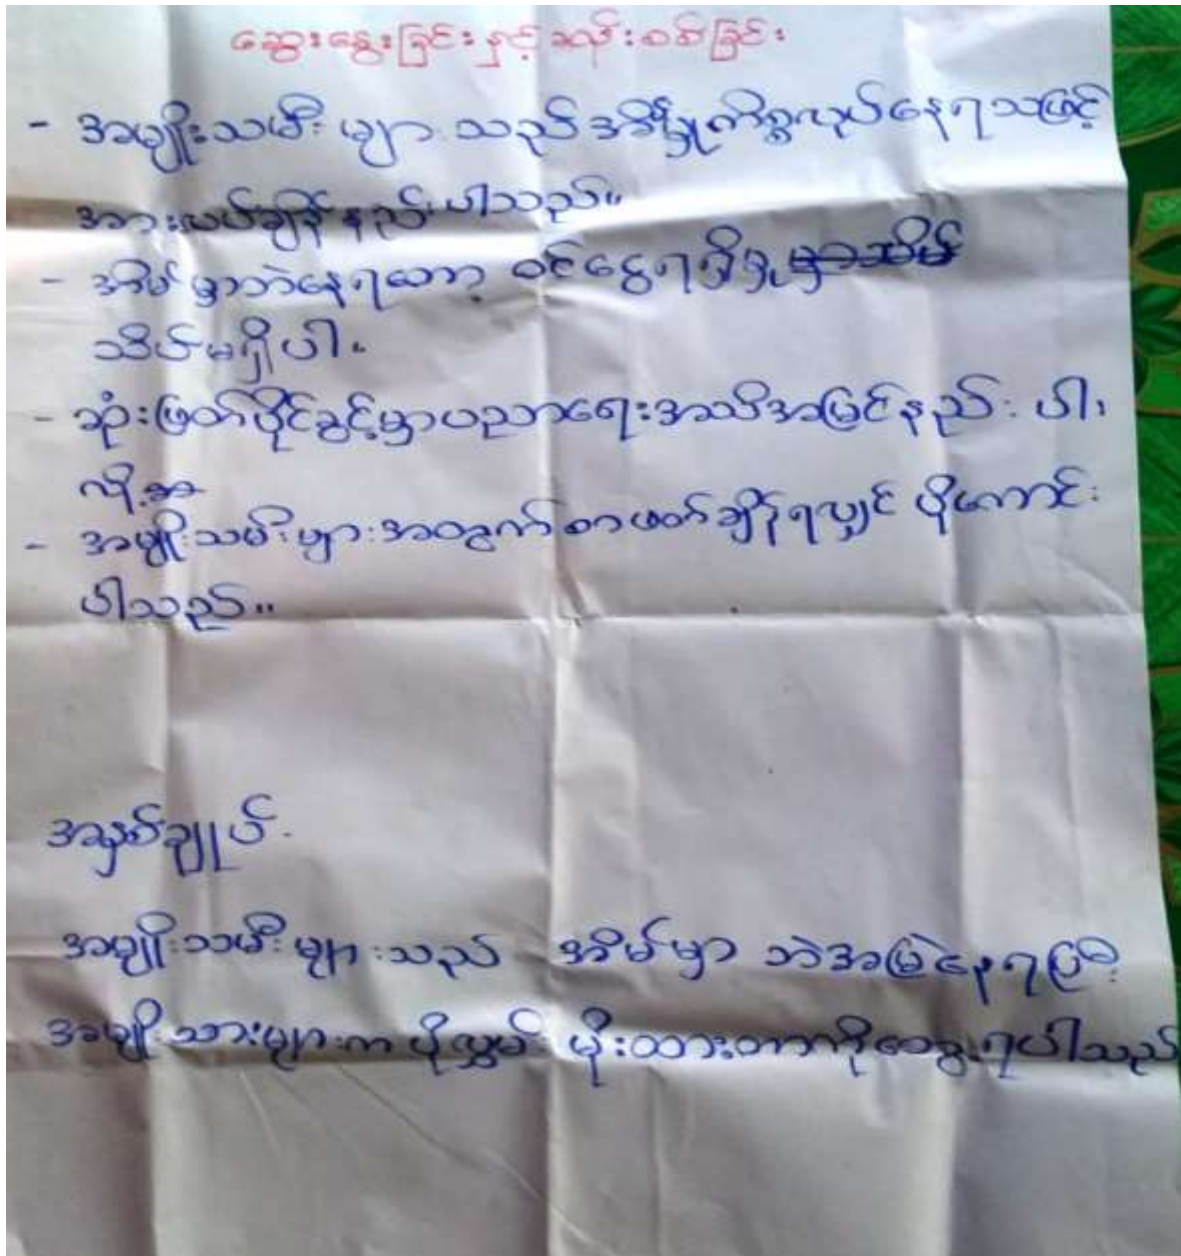 ဆွေးနွေးခြင်းနှင့်ဆန်းစစ်ခြင်း
- အမျိုးသမီးများသည်အိမ်မှုကိစ္စလုပ်နေရသဖြင့်
အားလပ်ချိန်နည်းပါသည်။
- အိမ်မှာဘဲနေရတော့ ဝင်ငွေရရှိမှု
သိပ်မရှိပါ။
- ဆုံးဖြတ်ပိုင်ခွင့်မှာပညာရေးအသိအမြင်နည်းပါ။
လို့
- အမျိုးသမီးများအတွက်စာဖတ်ချိန်ရလျှင် ပိုကောင်း
ပါသည်။
အနှစ်ချုပ်
အမျိုးသမီးများသည် အိမ်မှာ ဘဲအမြဲနေရပြီး
အမျိုးသားများက ပိုလွှမ်းမိုးထားတာကိုတွေ့ရပါသည်